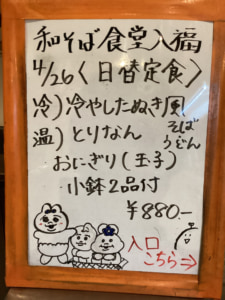 和そば食堂入福
4/26〈日替定食〉
冷)冷やしたぬき風
そば
うどん
温)とりなん
おにぎり(玉子)
小鉢2品付
¥880.-
入口
こちら→